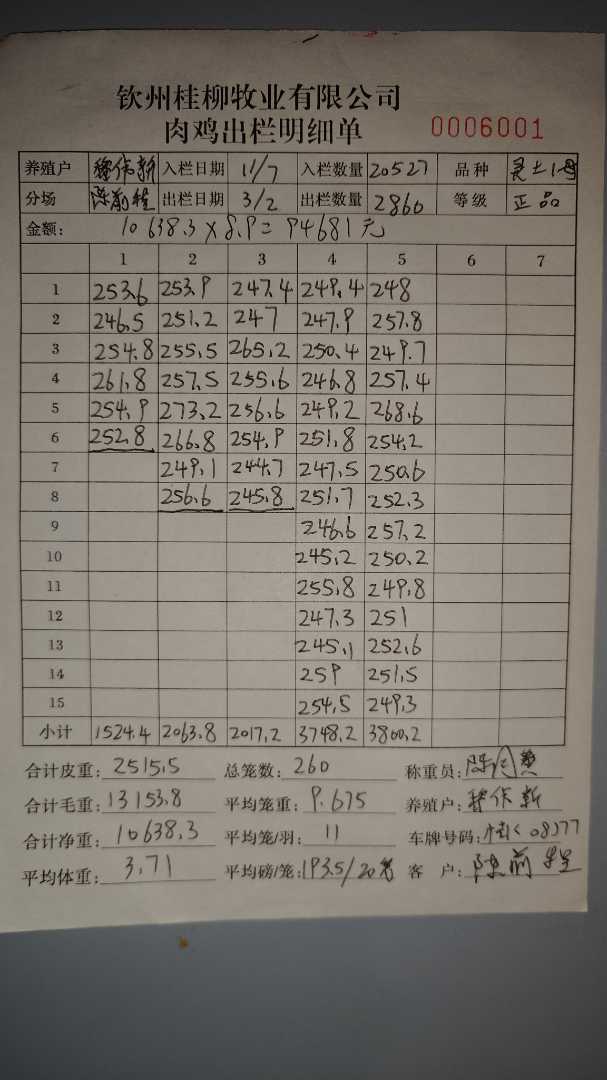 钦州桂柳牧业有限公司
肉鸡出栏明细单 0006001
养殖户 作新 入栏日期 11/7 入栏数量 20527 品种 灵土1号
分场 陈前程 出栏日期 3/2 出栏数量 2860 等级 正品
金额: 10638.3×8.9=94681元
1 2 3 4 5 6 7
1 253.6 253.9 247.4 249.4 248
2 246.5 251.2 247 247.9 257.8
3 254.8 255.5 265.2 250.4 249.7
4 261.8 257.5 255.6 246.8 257.4
5 254.9 273.2 256.6 249.2 268.6
6 252.8 266.8 254.9 251.8 254.2
7 249.1 244.7 247.5 250.6
8 256.6 245.8 251.7 252.3
9 246.6 257.2
10 245.2 250.2
11 255.8 249.8
12 247.3 251
13 245.1 252.6
14 259 251.5
15 254.5 249.3
小计 1524.4 2063.8 2017.2 3748.2 3800.2
合计皮重: 2515.5 总笼数: 260 称重员: 陈
合计毛重: 13153.8 平均笼重: 9.675 养殖户: 作新
合计净重: 10638.3 平均笼/羽: 11 车牌号码: 08277
平均体重: 3.71 平均磅/笼: 193.5/20笼 客 户: 陈前程